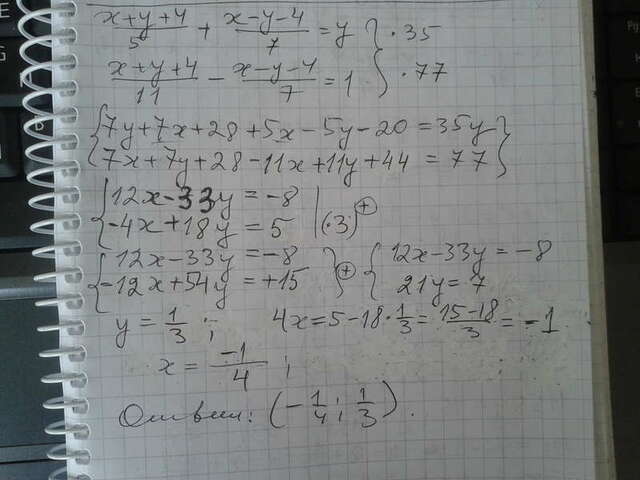 (x+y+4)/5 + (x-y-4)/7 = y } ·35
(x+y+4)/11 - (x-y-4)/7 = 1 } ·77
{ 7y+7x+28+5x-5y-20=35y }
{ 7x+7y+28-11x+11y+44=77 }
{ 12x-33y=-8
{ -4x+18y=5 |(·3) ⊕
{ 12x-33y=-8 } ⊕ { 12x-33y=-8
{ -12x+54y=+15 } { 21y=7
y=1/3; 4x=5-18·1/3=(15-18)/3=-1
x=-1/4;
Ответ: (-1/4; 1/3).